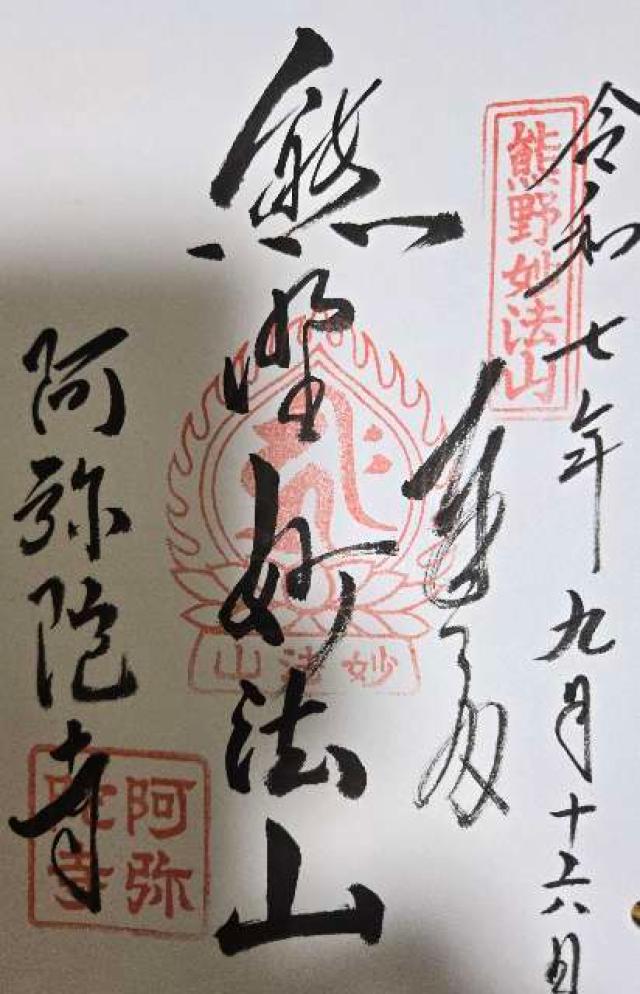 令和七年九月十六日
熊野妙法山
奉拝
熊野妙法山
妙法山
阿弥陀寺
阿弥陀寺